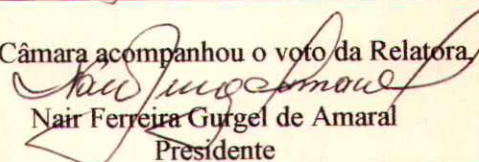 Câmara acompanhou o voto da Relatora
Nair Ferreira Gurgel de Amaral
Presidente